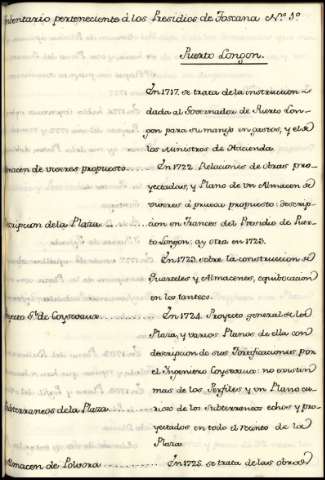 nventario perteneciente á los Presidios de Toscana Nº 3º
Puerto Longon.
En 1717. se trata de la instruccion
dada al Governador de Puerto Lon-
gon para su manejo en gastos, y el de
los Ministros de Hacienda.
macen de viveres propuesto........En 1722. Relaciones de obras pro-
yectadas, y Plano de un Almacen de
viveres á prueva propuesto: Descrip-
cripcion de la Plaza.......cion en Frances del Presidio de Puer-
to Longon: ay otra en 1723.
En 1723. sobre la construccion de
Quarteles y Almacenes, equivocacion
en los tanteos.
yecto Gl. de Coysevaux.......En 1724. Proyecto general de la
Plaza, y varios Planos de ella con
descripcion de sus Fortificaciones, por
el Ingeniero Coysevaux: no existen
mas de los Perfiles y un Plano cu-
ubterraneos de la Plaza.......rioso de los Subterraneos echos y pro-
yectados en todo el recinto de la
Plaza.
lmacen de Polvora...........En 1725. se trata de las obras